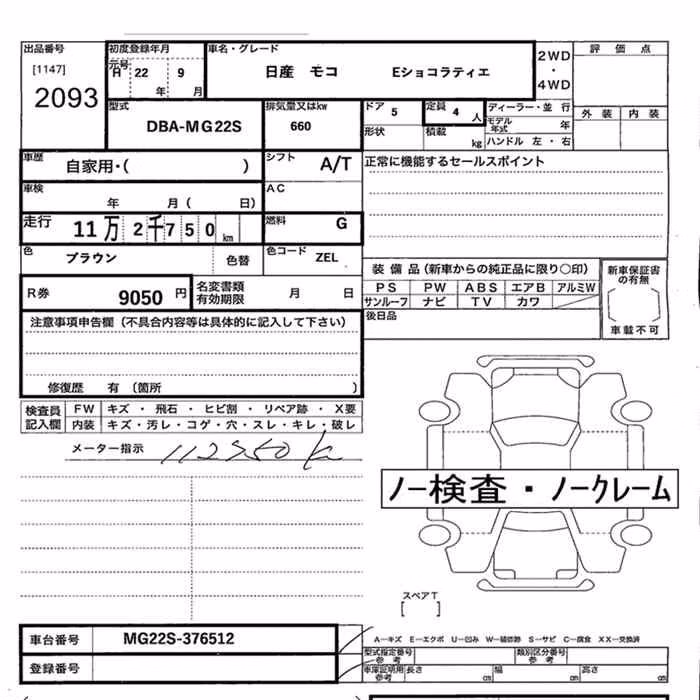 出品番号 初度登録年月 車名・グレード 2WD・4WD 評価点
[1147] 元号 H 22 9 日産 モコ Eショコラティエ
2093 年 月
型式 排気量又はkw ドア 5 定員 4 人 ディーラー・並行 外装 内装
DBA-MG22S 660 モデル年式 年
形状 積載 kg ハンドル 左・右
車歴 自家用・( ) シフト A/T 正常に機能するセールスポイント
車検 年 月( 日) AC
走行 11万 2千750 km 燃料 G
色 ブラウン 色替 色コード ZEL
装備品(新車からの純正品に限り○印) 新車保証書の有無
R券 9050 円 名変書類有効期限 月 日 PS PW ABS エアB アルミW
サンルーフ ナビ TV カワ
注意事項申告欄(不具合内容等は具体的に記入して下さい) 後日品 車載不可
修復歴 有(箇所 )
検査員記入欄 FW キズ・飛石・ヒビ割・リペア跡・X要
内装 キズ・汚レ・コゲ・穴・スレ・キレ・破レ
メーター指示
ノー検査・ノークレーム
スペアT
[ ]
車台番号 MG22S-376512 A―キズ E―エクボ U―凹み W―補修跡 S―サビ C―腐食 XX―交換済
型式指定番号 参考 類別区分番号 参考
登録番号 車庫証明用 参考 長さ cm 幅 cm 高さ cm